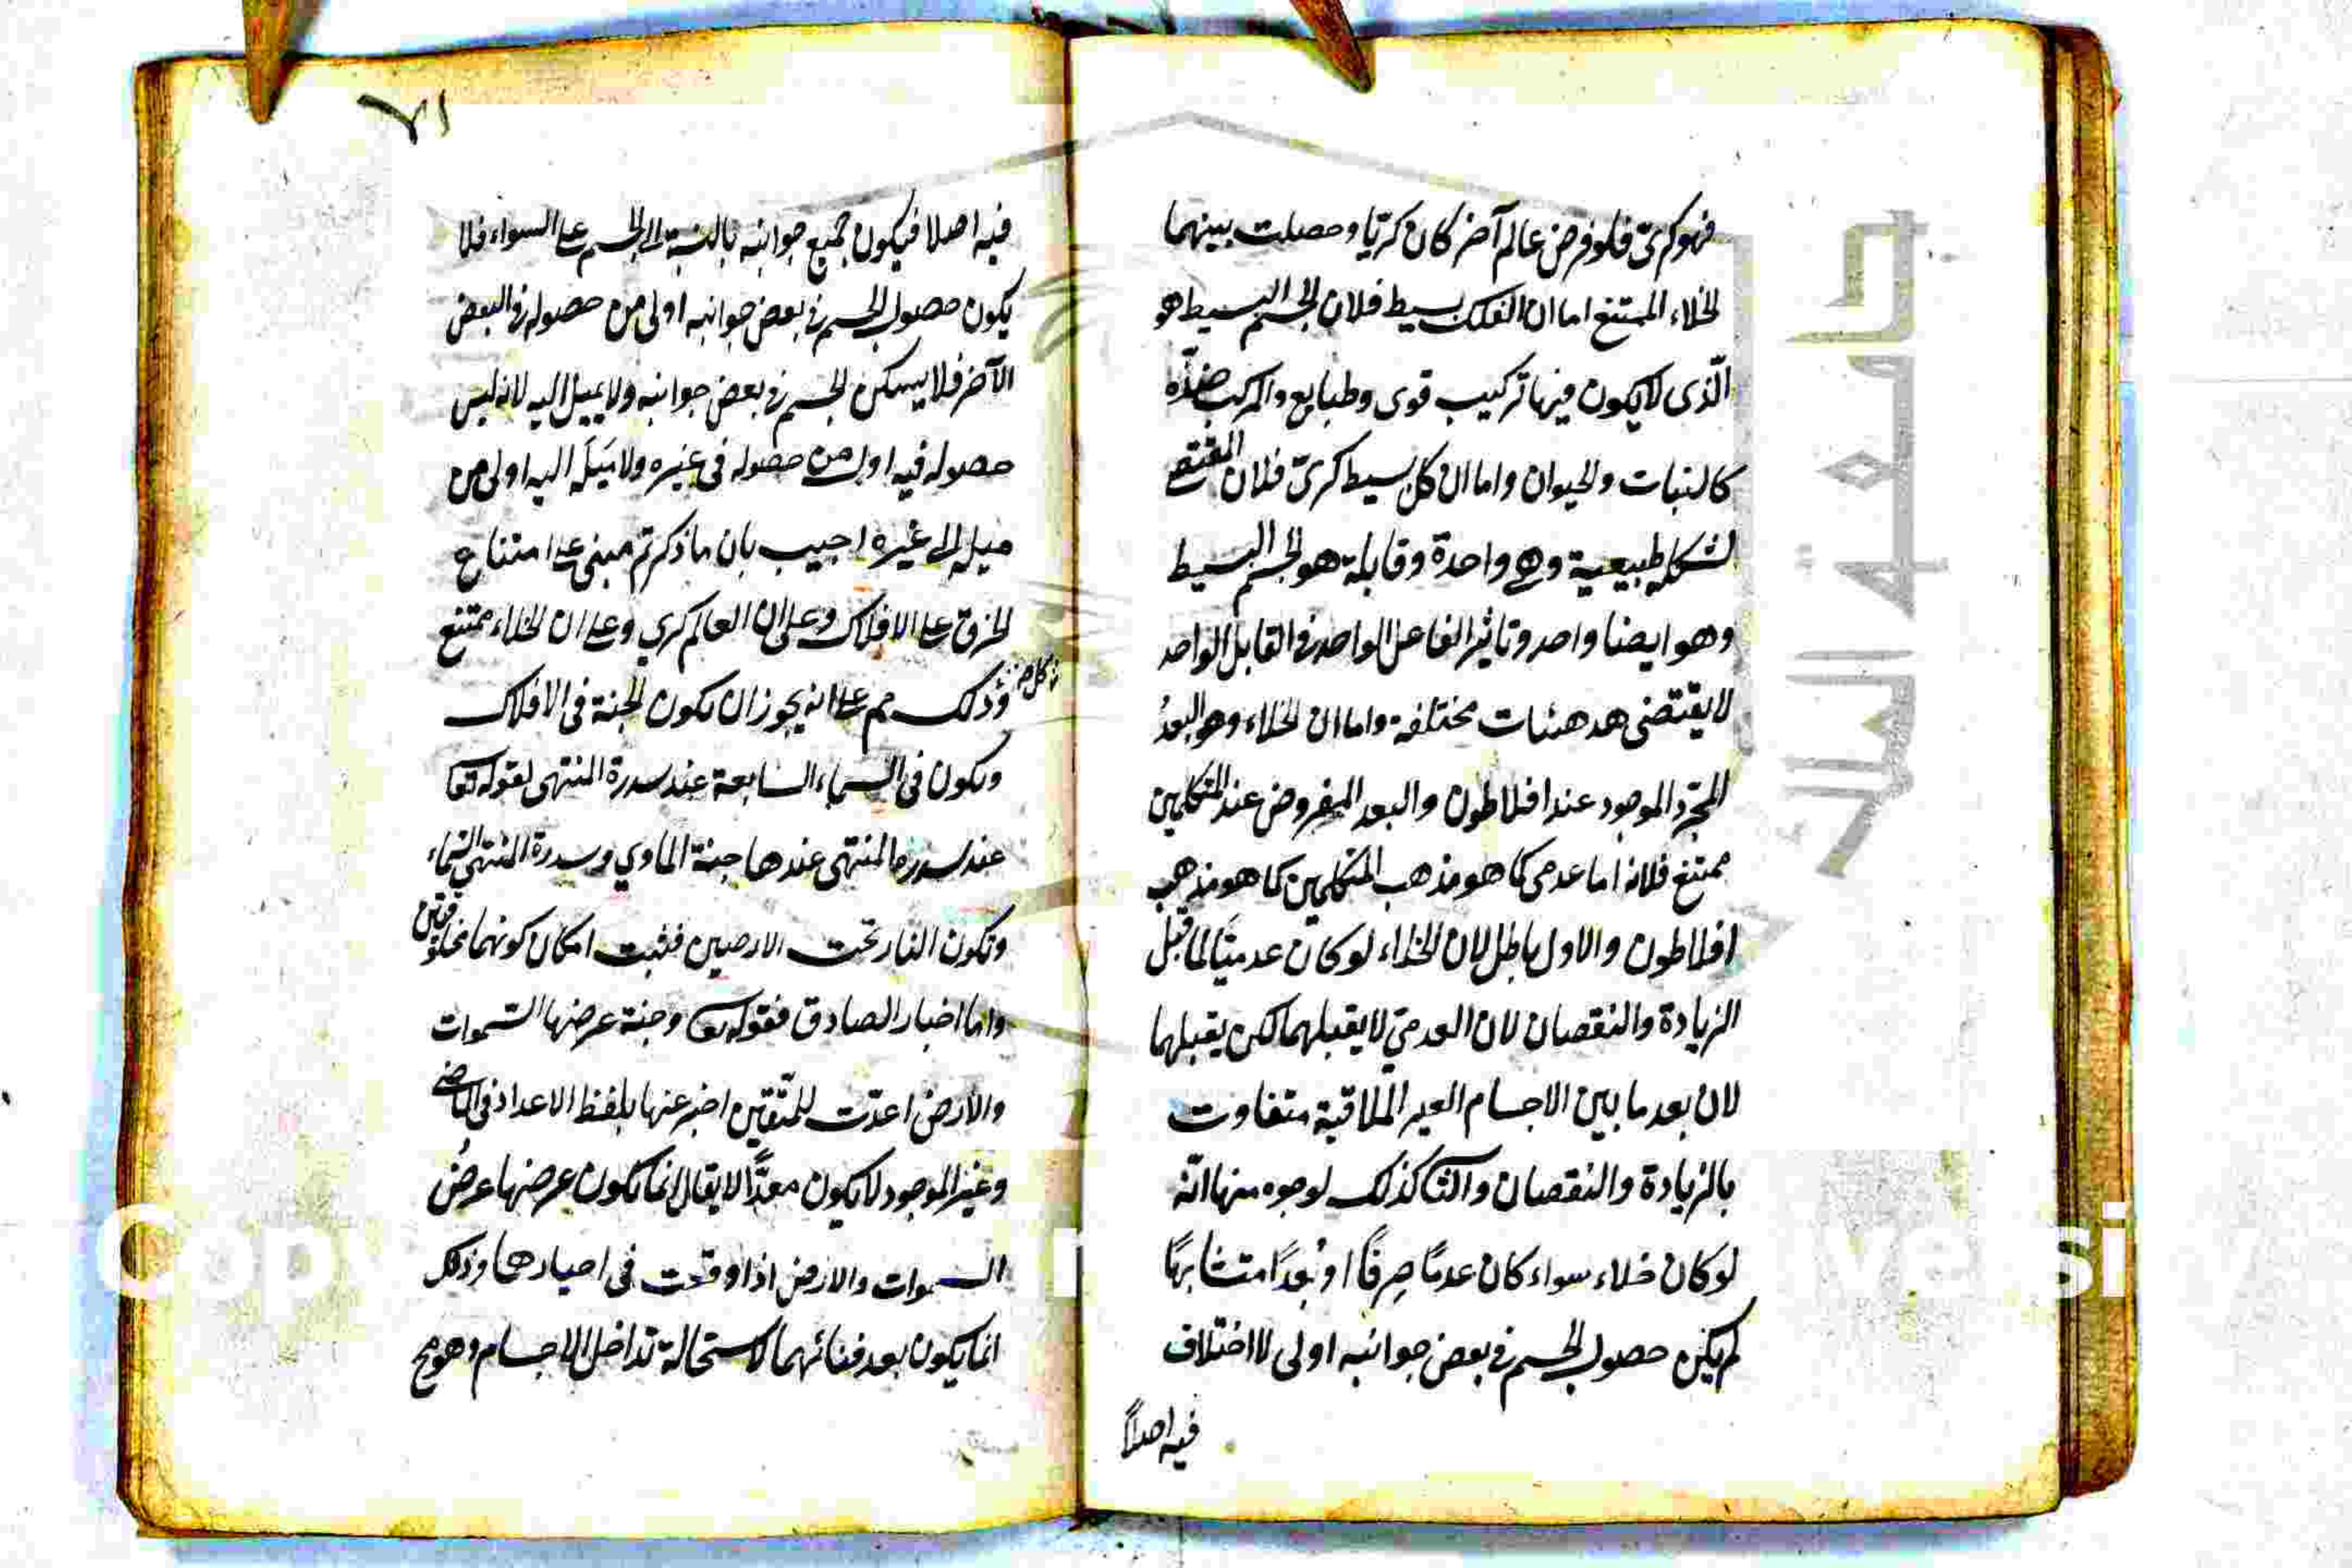 فهو كرىّ فلو فرض عالم آخر كان كرّيا وحصلت بينهما
الخلاء الممتنع اما ان الفلك بسيط فلان الجسم البسيط هو
الّذى لا يكون فيها تركيب قوى وطبايع والمركب ضدّه
كالنبات والحيوان واما ان كل بسيط كرىّ فلان المقتضى
لشكله طبيعية وهى واحدة وقابلة هو الجسم البسيط
وهو ايضا واحد وتاثير الفاعل الواحد فى القابل الواحد
لا يقتضى هيئات مختلفة واما ان الخلاء وهو البعدُ
المجرّد الموجود عند افلاطون والبعد المفروض عند المتكلمين
ممتنع فلانه اما عدمى كما هو مذهب المتكلمين كما هو مذهب
افلاطون والاول باطل لان الخلاء لو كان عدميّا لما قبل
الزيادة والنقصان لان العدمىّ لا يقبلهما لكن يقبلهما
لان بعد ما بين الاجسام الغير الملاقية متفاوت
بالزيادة والنقصان والثا كذلك لوجوه منها انّه
لو كان خلاء سواء كان عدمًا صِرفًا او بُعدًا متشابهًا
لم يكن حصول الجسم فى بعض جوانبه اولى لا اختلاف
فيه اصلاً
٧١
فيه اصلا فيكون جميع جوانبه بالنسبة الى الجسم على السواء فلا
يكون حصول الجسم فى بعض جوانبه اولى من حصوله فى البعض
الآخر فلا يسكن الجسم فى بعض جوانبه ولا يميل اليه لانه ليس
حصوله فيه اولى من حصوله فى غيره ولا مَيلَه اليه اولى من
ميله الى غيره اجيب بان ما ذكرتم مبنى على امتناع
الخرق على الافلاك وعلى ان العالم كرى وعلى ان الخلاء ممتنع
وذلك مم على انه يجوز ان تكون الجنة فى الافلاك
وتكون فى السماء السابعة عند سدرة المنتهى لقوله تعا
عند سدرة المنتهى عندها جنة الماوي وسدرة المنتهى السماء
وتكون النار تحت الارضين فثبت امكان كونهما مخلوقتين
واما اخبار الصادق فقوله تعا وجنة عرضها السموات
والارض اعدّت للمتّقين اخبر عنها بلفظ الاعداد فى الماضى
وغير الموجود لا يكون معدّاً لا يقال انما تكون عرضها عرضُ
السموات والارض اذا وقعت فى احيازها وذلك
انما يكون بعد فنائهما لاستحالة تداخل الاجسام وهو مح